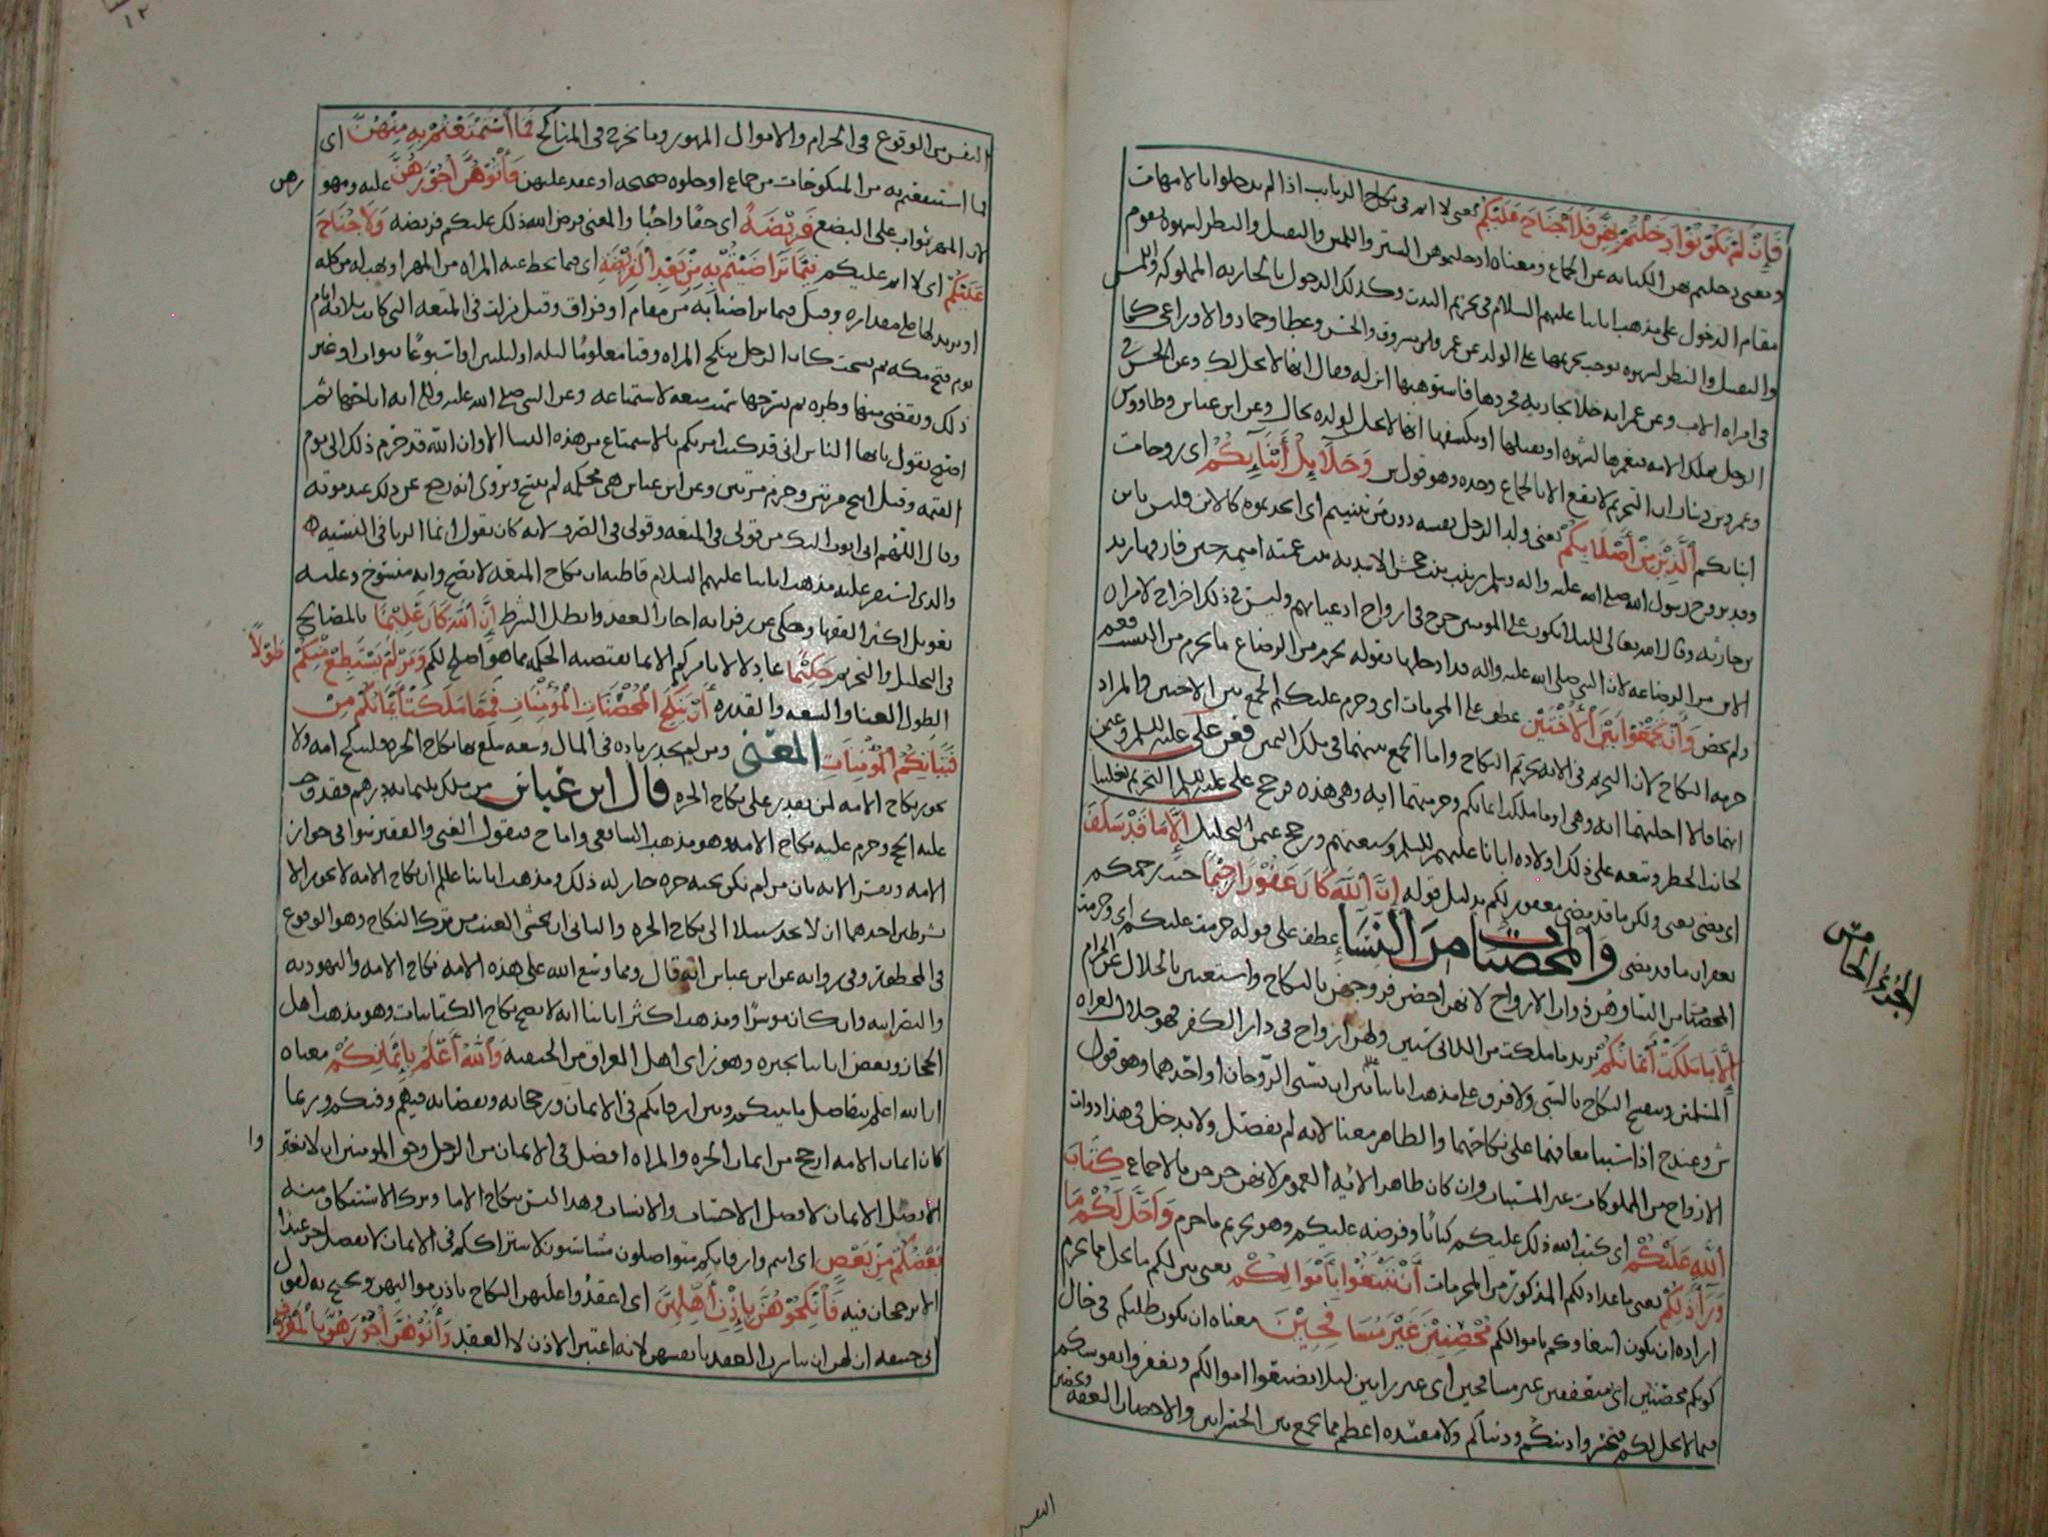 فَإِنْ لَمْ تَكُونُوا دَخَلْتُمْ بِهِنَّ فَلَا جُنَاحَ عَلَيْكُمْ يعني لا اثم في نكاح الربايب اذا لم يدخلوا بالامهات
ومعنى دخلتم بهن الكنايه عن الجماع ومعناه ادخلتموهن الستر واللمس والتقبيل والنظر لشهوه يقوم
مقام الدخول على مذهب ابائنا عليهم السلام في تحريم البنت وكذلك الدخول بالجاريه المملوكه واللمس
والتقبيل والنظر لشهوه يوجب تحريمها على الولد عن عمر وابن مسروق والحسن وعطا وحماد والاوزاعي كما
في امراه الاب وعن عمر انه خلا بجاريه فجردها فاستوهبها ابن له فقال انها لا تحل لك وعن الحسن في
الرجل يملك الامه يغمزها لشهوه او يقبلها او يكشفها انها لا تحل لولده بحال وعن ابن عباس وطاووس
وعمرو بن دينار ان التحريم لا يقع الا بالجماع وحده وهو قول ش وَحَلَائِلُ أَبْنَائِكُمُ اي زوجات
ابنائكم الَّذِينَ مِنْ أَصْلَابِكُمْ يعني ولد الرجل بنفسه دون من تبنيتم اي اتخذتموه كالابن وليس بابن
وقد تزوج رسول الله صلى الله عليه واله وسلم زينب بنت جحش الاسديه بنت عمته اميمه حين فارقها زيد
بن حارثه وقال الله تعالى لكيلا يكون على المومنين حرج في ازواج ادعيائهم وليس في ذلك اخراج لامراه
الابن من الرضاعه لان النبي صلى الله عليه واله قد ادخلها بقوله يحرم من الرضاع ما يحرم من النسب فعم
ولم يخص وَأَنْ تَجْمَعُوا بَيْنَ الْأُخْتَيْنِ عطف على المحرمات اي وحرم عليكم الجمع بين الاختين والمراد
حرمه النكاح لان التحريم في الايه تحريم النكاح واما الجمع بينهما في ملك اليمين فعن علي عليه السلم وعثمن
انهما قالا احلتهما ايه وهي او ما ملكت ايمانكم وحرمتهما ايه وهي هذه فرجح علي عليه السلم التحريم تغليبا
لجانب الحظر وتبعه على ذلك اولاده ابائنا عليهم السلم وشيعتهم ورجح عثمن التحليل إِلَّا مَا قَدْ سَلَفَ
اي مضى يعني ولكن ما قد مضى مغفور لكم بدليل قوله إِنَّ اللَّهَ كَانَ غَفُورًا رَحِيمًا حيث رحمكم
بغفران ما قد مضى وَالْمُحْصَنَاتُ مِنَ النِّسَاءِ عطف على قوله حرمت عليكم اي وحرمت
المحصنات من النسا وهن ذوات الازواج لانهن احصن فروجهن بالنكاح واستغنين بالحلال عن الحرام
إِلَّا مَا مَلَكَتْ أَيْمَانُكُمْ يريد ما ملكت من اللاتي سبين ولهن ازواج في دار الكفر فهو حلال لغزاه
المسلمين وينفسخ النكاح بالسبي ولا فرق على مذهب ابائنا بين ان يسبى الزوجان او احدهما وهو قول
ش وعند ح اذا سبيا معا فهما على نكاحهما والظاهر معنا لانه لم يفصل ولا يدخل في هذا ذوات
الازواج من المملوكات غير المسبيات وان كان ظاهر الايه العموم لانهن خرجن بالاجماع كِتَابَ
اللَّهِ عَلَيْكُمْ اي كتب الله ذلك عليكم كتابا وفرضه عليكم وهو تحريم ما حرم وَأُحِلَّ لَكُمْ مَا
وَرَاءَ ذَلِكُمْ يعني ما عدا ذلكم المذكور من المحرمات أَنْ تَبْتَغُوا بِأَمْوَالِكُمْ يعني بين لكم ما يحل مما يحرم
اراده ان يكون ابتغاؤكم باموالكم مُحْصِنِينَ غَيْرَ مُسَافِحِينَ معناه ان يكون طلبكم في حال
كونكم محصنين اي متعففين غير مسافحين اي غير زانين ليلا تضيعوا اموالكم وتفقروا نفوسكم
فيما لا يحل لكم فتخسروا دينكم ودنياكم ولا مفسده اعظم مما يجمع بين الخسرانين والاحصان العفه وتحصين
الجزء الخامس
النفس
النفس من الوقوع في الحرام والاموال المهور وما يخرج في المناكح فَمَا اسْتَمْتَعْتُمْ بِهِ مِنْهُنَّ اي
فما استنفعتم به من المنكوحات من جماع او خلوه صحيحه او عقد عليهن فَآتُوهُنَّ أُجُورَهُنَّ عليه ومهورهن
لان المهر ثواب على البضع فَرِيضَةً اي حقا واجبا والمعنى فرض الله ذلك عليكم فريضه وَلَا جُنَاحَ
عَلَيْكُمْ اي لا اثم عليكم فِيمَا تَرَاضَيْتُمْ بِهِ مِنْ بَعْدِ الْفَرِيضَةِ اي فيما تحط عنه المراه من المهر او تهبه له من كله
او يزيد لها على مقداره وقيل فيما تراضيا به من مقام او فراق وقيل نزلت في المتعه التي كانت ثلاثه ايام
يوم فتح مكه ثم نسخت كان الرجل ينكح المراه وقتا معلوما ليله او ليلتين او اسبوعا بثوب او غير
ذلك ويقضي منها وطره ثم يسرحها سميت متعه لاستمتاعه وعن النبي صلى الله عليه واله انه اباحها ثم
اصبح يقول يايها الناس اني قد كنت امرتكم بالاستمتاع من هذه النسا الا وان الله قد حرم ذلك الى يوم
القيمه وقيل ابيح مرتين وحرم مرتين وعن ابن عباس هي محكمه لم تنسخ ويروى انه رجع عن ذلك عند موته
وقال اللهم اني اتوب اليك من قولي في المتعه وقولي في الصرف لانه كان يقول انما الربا في النسيه
والذي استقر عليه مذهب ابائنا عليهم السلام قاطبه ان نكاح المتعه لا يصح وانه منسوخ وعليه
تعويل اكثر الفقها وحكي عن زفر انه اجاز العقد وابطل الشرط إِنَّ اللَّهَ كَانَ عَلِيمًا بالمصالح
في التحليل والتحريم حَكِيمًا عادلا لا يامركم الا بما تقتضيه الحكمه مما هو اصلح لكم وَمَنْ لَمْ يَسْتَطِعْ مِنْكُمْ طَوْلًا
الطول الغنا والسعه والقدره أَنْ يَنْكِحَ الْمُحْصَنَاتِ الْمُؤْمِنَاتِ فَمِمَّا مَلَكَتْ أَيْمَانُكُمْ مِنْ
فَتَيَاتِكُمُ الْمُؤْمِنَاتِ المعنى ومن لم يجد زياده في المال وسعه يبلغ بها نكاح الحره فلينكح امه ولا
يجوز نكاح الامه لمن يقدر على نكاح الحره قال ابن عباس من ملك ثلثمايه درهم فقد وجب
عليه الحج وحرم عليه نكاح الامه وهو مذهب الشافعي واما ح فيقول الغني والفقير سوا في جواز
الامه ويفسر الايه بان من لم تكن تحته حره جاز له ذلك ومذهب ابائنا علم ان نكاح الامه لا يجوز الا
بشرطين احدهما ان لا يجد سبيلا الى نكاح الحره والثاني ان يخشى العنت من ترك النكاح وهو الوقوع
في المحظور وفي روايه عن ابن عباس انه قال ومما وسع الله على هذه الامه نكاح الامه واليهوديه
والنصرانيه وان كان موسرا ومذهب اكثر ابائنا انه لا يصح نكاح الكتابيات وهو مذهب اهل
الحجاز وبعض ابائنا يجيزه وهو راي اهل العراق من الحنفيه وَاللَّهُ أَعْلَمُ بِإِيمَانِكُمْ معناه
ان الله اعلم بتفاضل ما بينكم وبين ارقائكم في الايمان ورجحانه ونقصانه فيهم وفيكم وربما
كان ايمان الامه ارجح من ايمان الحره والمراه افضل في الايمان من الرجل وحق المومنين ان لا يعتبروا
الا فضل الايمان لا فضل الاحساب والانساب وهذا تانيس بنكاح الاما وترك الاستنكاف منه
بَعْضُكُمْ مِنْ بَعْضٍ اي انتم وارقاؤكم متواصلون متناسبون لاشتراككم في الايمان لا يفضل حر عبدا
الا برجحان فيه فَانْكِحُوهُنَّ بِإِذْنِ أَهْلِهِنَّ اي اعقدوا عليهن النكاح باذن مواليهن ويحتج به لقول
ابي حنيفه ان لهن ان يباشرن العقد بانفسهن لانه اعتبر الاذن لا العقد وَآتُوهُنَّ أُجُورَهُنَّ بِالْمَعْرُوفِ